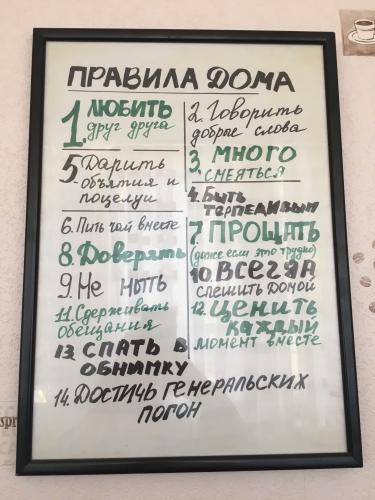 ПРАВИЛА ДОМА
1. ЛЮБИТЬ
друг друга
2. Говорить
добрые слова
3. МНОГО
СМЕЯТЬСЯ
4. БЫТЬ
ТЕРПЕЛИВЫМ
5. Дарить
объятия и
поцелуи
6. Пить чай вместе
7. ПРОЩАТЬ
(даже если это трудно)
8. Доверять
9. Не ныть
10. ВСЕГДА
СПЕШИТЬ ДОМОЙ
11. Сдерживать
обещания
12. ЦЕНИТЬ
КАЖДЫЙ
МОМЕНТ ВМЕСТЕ
13. СПАТЬ В
ОБНИМКУ
14. ДОСТИЧЬ ГЕНЕРАЛЬСКИХ
ПОГОН